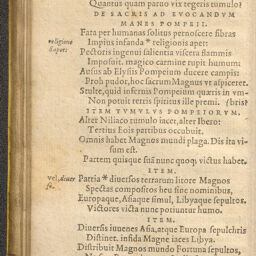 Quantus quam paruo vix tegeris tumulo?
DE SACRIS AD EVOCANDVM
MANES POMPEII.
Fata per humanas solitus pernoscere fibras
Impius infanda * religionis apet:
*religione
sapet:
Pectoris ingenui salientia viscera flammis
Imposuit. magico carmine rupit humum:
Ausus ab Elysiis Pompeium ducere campis:
Proh pudor, hoc sacrum Magnus vt aspiceret.
Stulte, quid infernis Pompeium quæris in vm-
Non potuit terris spiritus ille premi. (bris?
ITEM TVMVLVS POMPEIORVM.
Alter Niliaco tumulo iacet, alter Ibero:
Tertius Eois partibus occubuit.
Omnis habet Magnos mundi plaga. Dis ita vi-
sum est.
Partem quisque suā nunc quoq; victus habet.
ITEM.
vel, diuer
sa.
Patria * diuersos terrarum litore Magnos
Spectas compositos heu sine nominibus,
Europaque, Asiaque simul, Libyaque sepultos.
Victores victa nunc potiuntur humo.
ITEM.
Diuersis iuuenes Asia, atque Europa sepulchris
Distinet. infida Magne iaces Libya.
Distribuit Magnos mundo Fortuna sepultos,